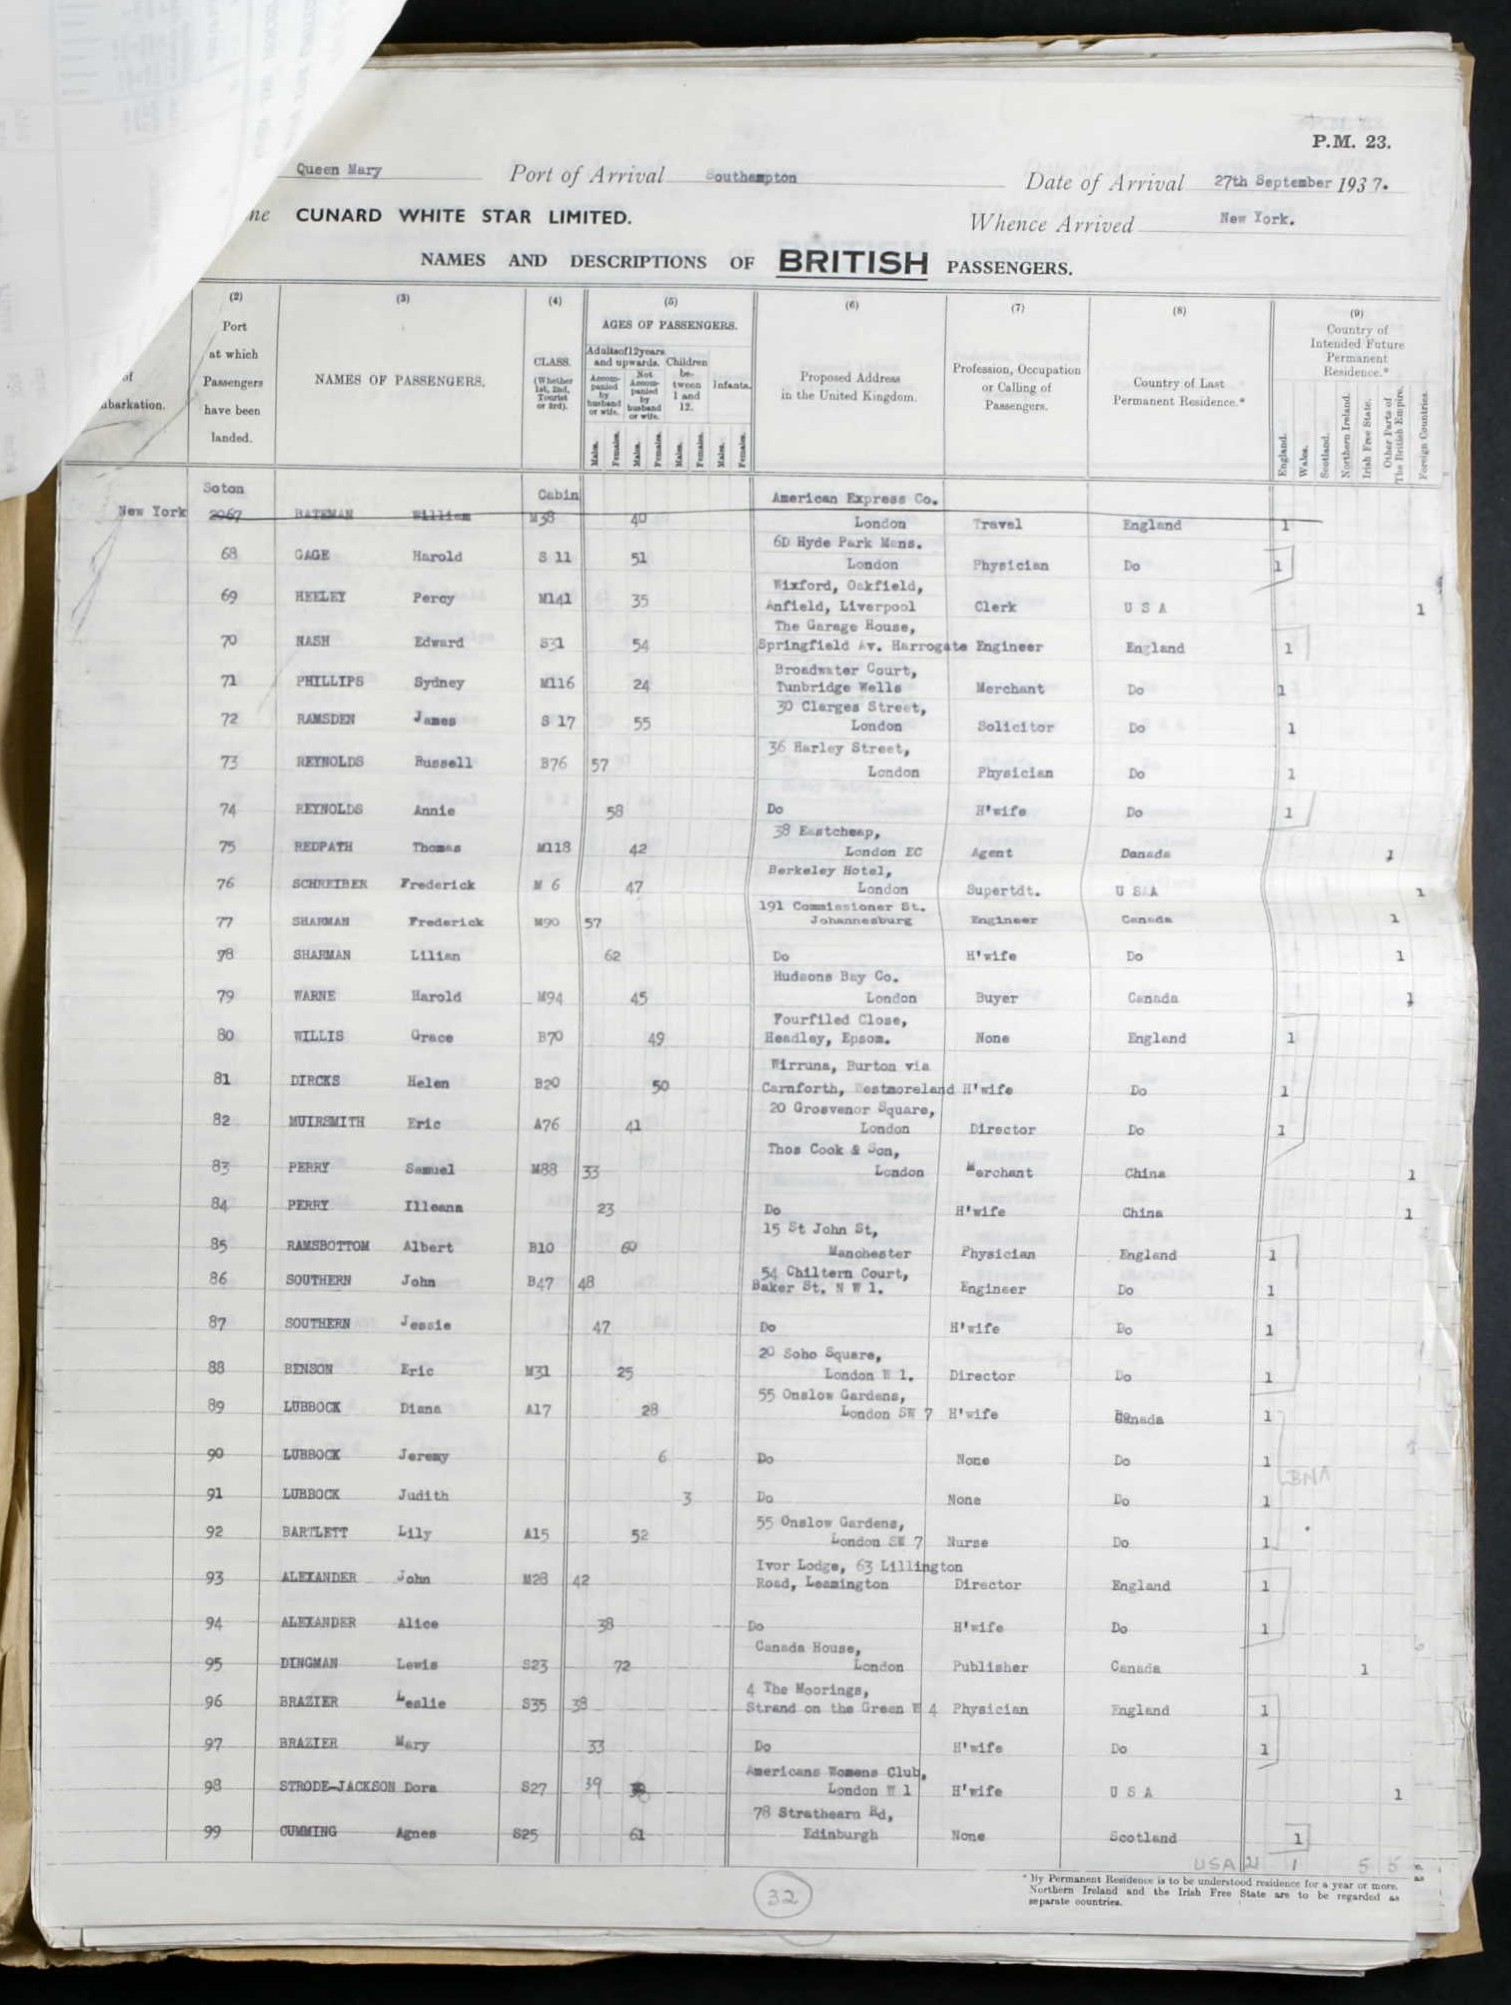 P.M. 23.
Queen Mary Port of Arrival Southampton Date of Arrival 27th September 1937.
ne CUNARD WHITE STAR LIMITED. Whence Arrived New York.
NAMES AND DESCRIPTIONS OF BRITISH PASSENGERS.
(2) (3) (4) (5) (6) (7) (8) (9)
of
mbarkation.
Port
at which
Passengers
have been
landed.
NAMES OF PASSENGERS.
CLASS.
(Whether
1st, 2nd,
Tourist
or 3rd).
AGES OF PASSENGERS.
Adults of 12 years
and upwards.
Accom-
panied
by
husband
or wife.
Not
Accom-
panied
by
husband
or wife.
Children
be-
tween
1 and
12.
Infants.
Males. Females. Males. Females. Males. Females. Males. Females.
Proposed Address
in the United Kingdom.
Profession, Occupation
or Calling of
Passengers.
Country of Last
Permanent Residence.*
Country of
Intended Future
Permanent
Residence.*
England.
Wales.
Scotland.
Northern Ireland.
Irish Free State.
Other Parts of
The British Empire.
Foreign Countries.
Soton Cabin American Express Co.
New York 2067 BATEMAN William M38 40 London Travel England 1
6D Hyde Park Mans.
68 GAGE Harold S 11 51 London Physician Do 1
Wixford, Oakfield,
69 HEELEY Percy M141 35 Anfield, Liverpool Clerk U S A 1
The Garage House,
70 NASH Edward S31 54 Springfield Av. Harrogate Engineer England 1
Broadwater Court,
71 PHILLIPS Sydney M116 24 Tunbridge Wells Merchant Do 1
30 Clarges Street,
72 RAMSDEN James S 17 55 London Solicitor Do 1
36 Harley Street,
73 REYNOLDS Russell B76 57 London Physician Do 1
74 REYNOLDS Annie 58 Do H'wife Do 1
38 Eastcheap,
75 REDPATH Thomas M118 42 London EC Agent Canada 1
Berkeley Hotel,
76 SCHREIBER Frederick M 6 47 London Supertdt. U S A 1
191 Commissioner St.
77 SHARMAN Frederick M90 57 Johannesburg Engineer Canada 1
78 SHARMAN Lilian 62 Do H'wife Do 1
Hudsons Bay Co.
79 WARNE Harold M94 45 London Buyer Canada 1
Fourfiled Close,
80 WILLIS Grace B70 49 Headley, Epsom. None England 1
Wirruna, Burton via
81 DIRCKS Helen B20 50 Carnforth, Westmoreland H'wife Do 1
20 Grosvenor Square,
82 MUIRSMITH Eric A76 41 London Director Do 1
Thos Cook & Son,
83 PERRY Samuel M88 33 London Merchant China 1
84 PERRY Illeana 23 Do H'wife China 1
15 St John St,
85 RAMSBOTTOM Albert B10 60 Manchester Physician England 1
54 Chiltern Court,
86 SOUTHERN John B47 48 Baker St. N W 1. Engineer Do 1
87 SOUTHERN Jessie 47 Do H'wife Do 1
20 Soho Square,
88 BENSON Eric M31 25 London W 1. Director Do 1
55 Onslow Gardens,
89 LUBBOCK Diana A17 28 London SW 7 H'wife Canada 1
90 LUBBOCK Jeremy 6 Do None Do 1
BNA
91 LUBBOCK Judith 3 Do None Do 1
55 Onslow Gardens,
92 BARTLETT Lily A15 52 London SW 7 Nurse Do 1
Ivor Lodge, 63 Lillington
93 ALEXANDER John M28 42 Road, Leamington Director England 1
94 ALEXANDER Alice 38 Do H'wife Do 1
Canada House,
95 DINGMAN Lewis S23 72 London Publisher Canada 1
4 The Moorings,
96 BRAZIER Leslie S35 38 Strand on the Green W 4 Physician England 1
97 BRAZIER Mary 33 Do H'wife Do 1
Americans Womens Club,
98 STRODE-JACKSON Dora S27 39 London W 1 H'wife U S A 1
78 Strathearn Rd,
99 CUMMING Agnes S25 61 Edinburgh None Scotland 1
USA 21 1 5 5
32
* By Permanent Residence is to be understood residence for a year or more.
Northern Ireland and the Irish Free State are to be regarded as
separate countries.